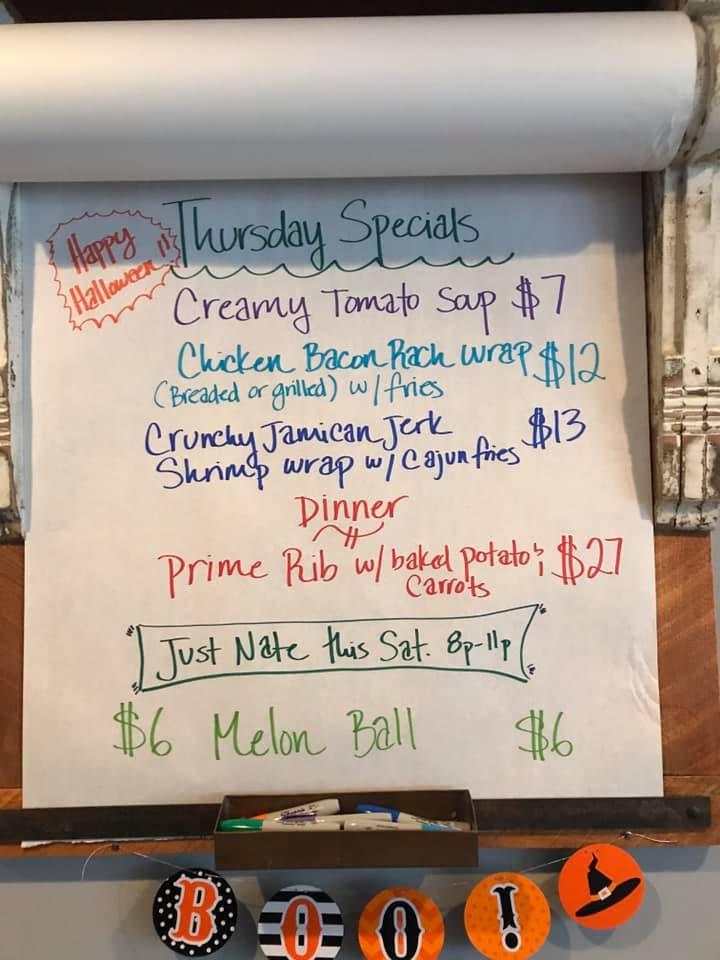 Happy
Halloween!!
Thursday Specials
Creamy Tomato Soup $7
Chicken Bacon Rach Wrap $12
(Breaded or grilled) w/ fries
Crunchy Jamican Jerk $13
Shrimp wrap w/ Cajun fries
Dinner
Prime Rib w/ baked potato & $27
Carrots
Just Nate this Sat. 8p-11p
$6 Melon Ball $6
BOO!